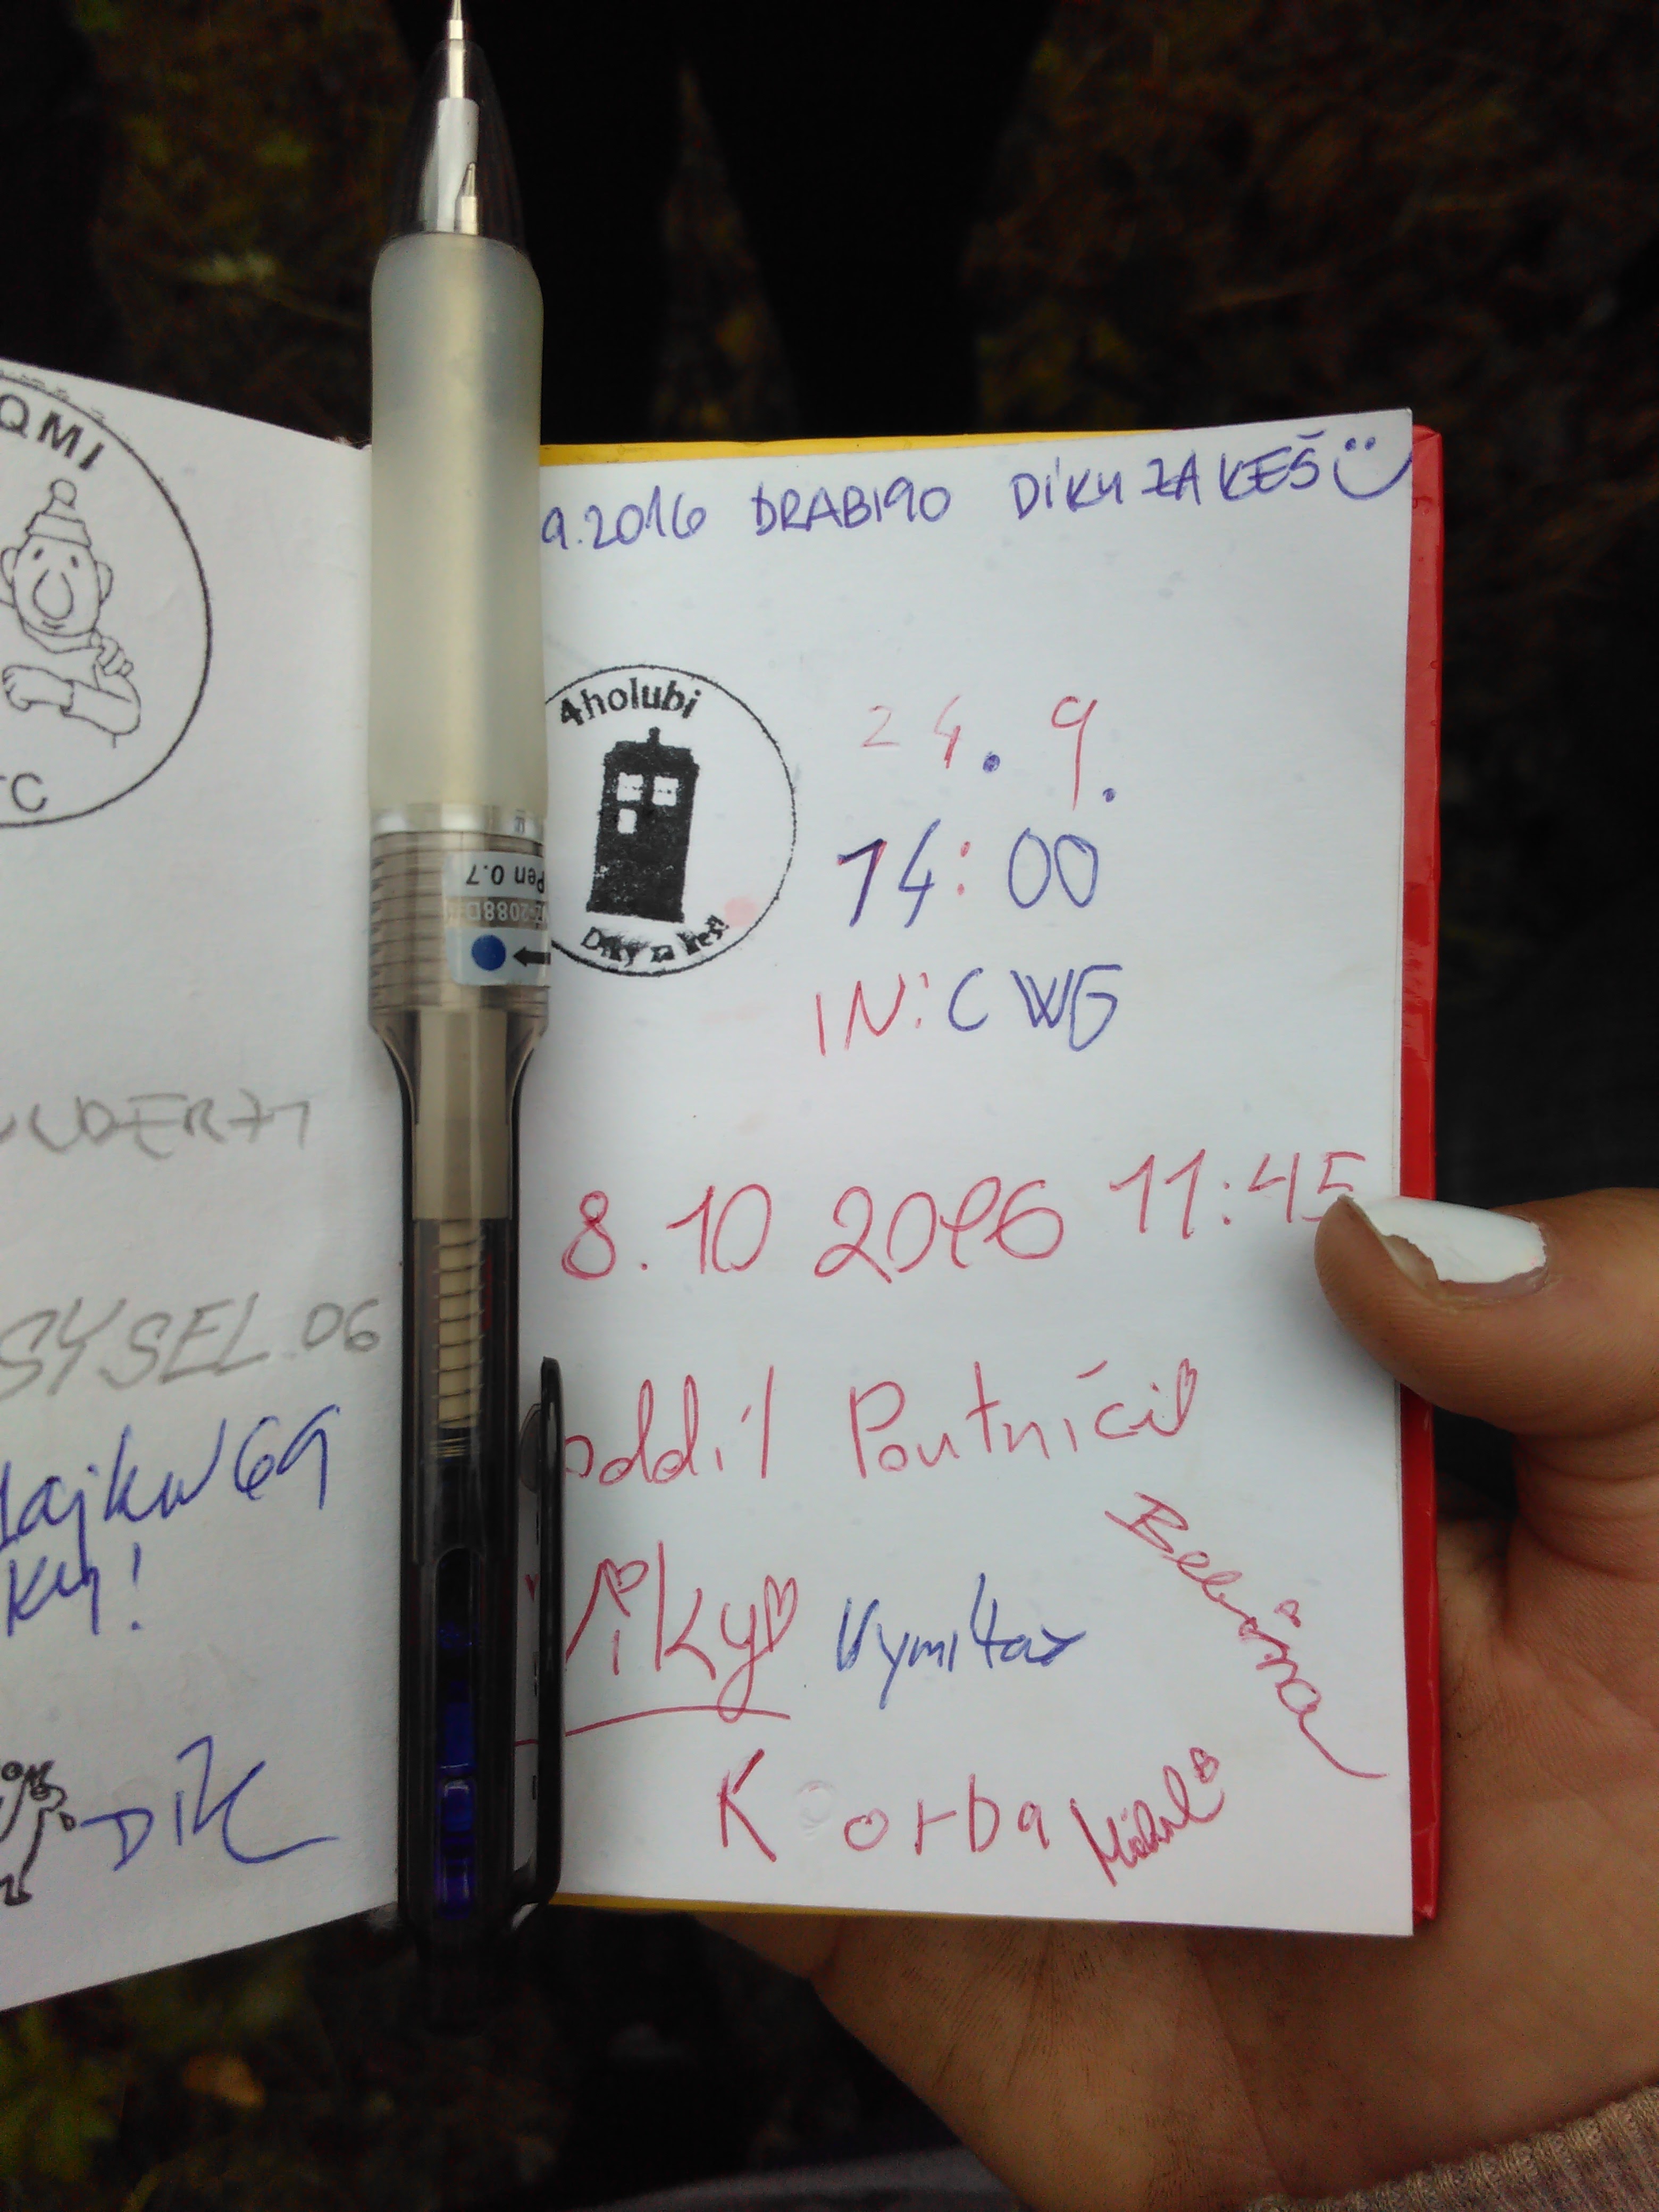 QMI
TC
SYSEL 06
69
ky!
DÍK
9.2016 DRABI90 DÍKY ZA KEŠ
4holubi
Díky za keš!
24. 9.
14:00
IN: CWG
8.10 2016 11:45
oddíl Poutníci
Niky
Korba
Pen 0.7